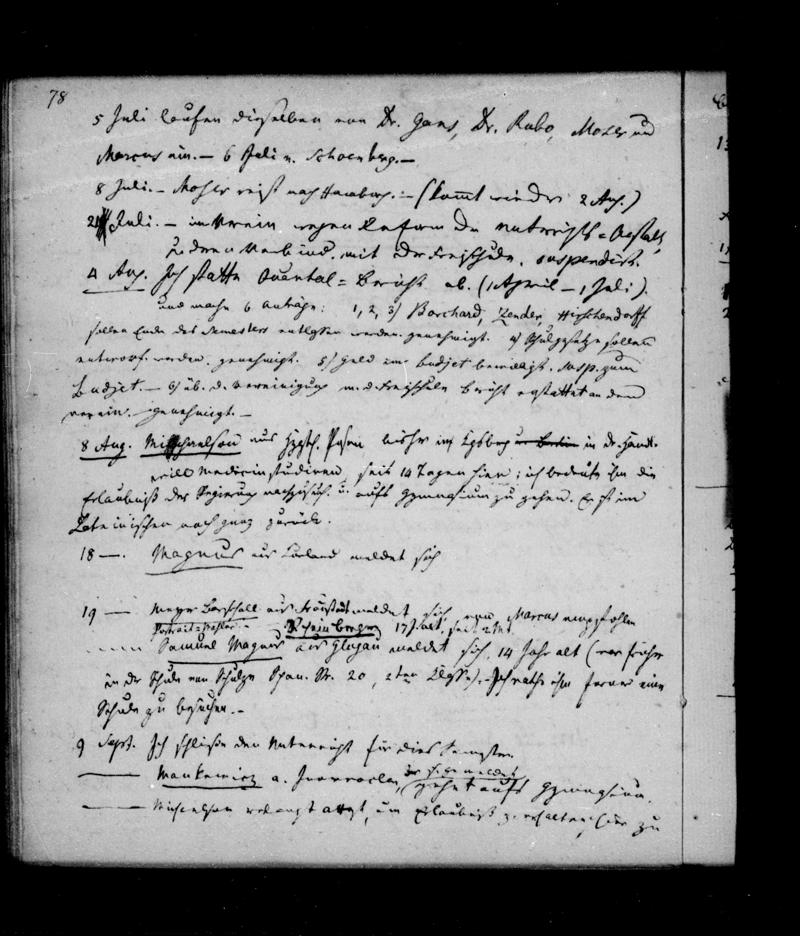 78
5 Juli laufen dieselben von Dr. Gans, Dr. Rubo, Moser und
Marcus ein. — 6 Juli v. Schoenberg. —
8 Juli. — Moser reist nach Hamburg. — (kommt wieder 2 Aug.)
Juli. — im Verein wegen Reform der Unterrichts=Anstalt,
u. deren Verbind. mit der Freischule. suspendirt.
4 Aug. Ich statte Quartal=Bericht ab. (1 April — 1 Juli).
und mache 6 Anträge: 1, 2, 3) Borchard, Zender, Hirschendorff
sollen Ende des Semesters entlassen werden. genehmigt. 4) Schulgesetze sollen
entworf. werden. genehmigt. 5) Geld im Budjet bewilligt. susp. zum
Budjet. — 6) üb. d. Vereinigung m. d. Freischule Bericht erstattet an den
Verein. — genehmigt. —
8 Aug. Michaelson aus Posen bisher in in der Handl.
will Medicin studiren, seit 14 Tagen hier; ich bedeute ihm die
Erlaubniß der Regierung nachzusuch. u. aufs Gymnasium zu gehen. Er ist im
Lateinischen noch ganz zurück.
18 —. Magnus aus Curland meldet sich
19 — Meyer aus Fraustadt meldet sich, von Marcus empfohlen
Rheinberger 17 Jahr, seit 2 Mt.
Samuel Magnus aus Glogau meldet sich, 14 Jahr alt (war früher
in der Schule von Schulze Span. Str. 20, 2ter Classe). — Ich rathe ihm ferner eine
Schule zu besuchen. —
9 Sept. Ich schließe den Unterricht für dies Semester.
— Mankewicz a. Inowraclaw, der sich gemeldet geht aufs Gymnasium.
— Michaelson verlangt Attest, um Erlaubniß z. erhalten, hier zu